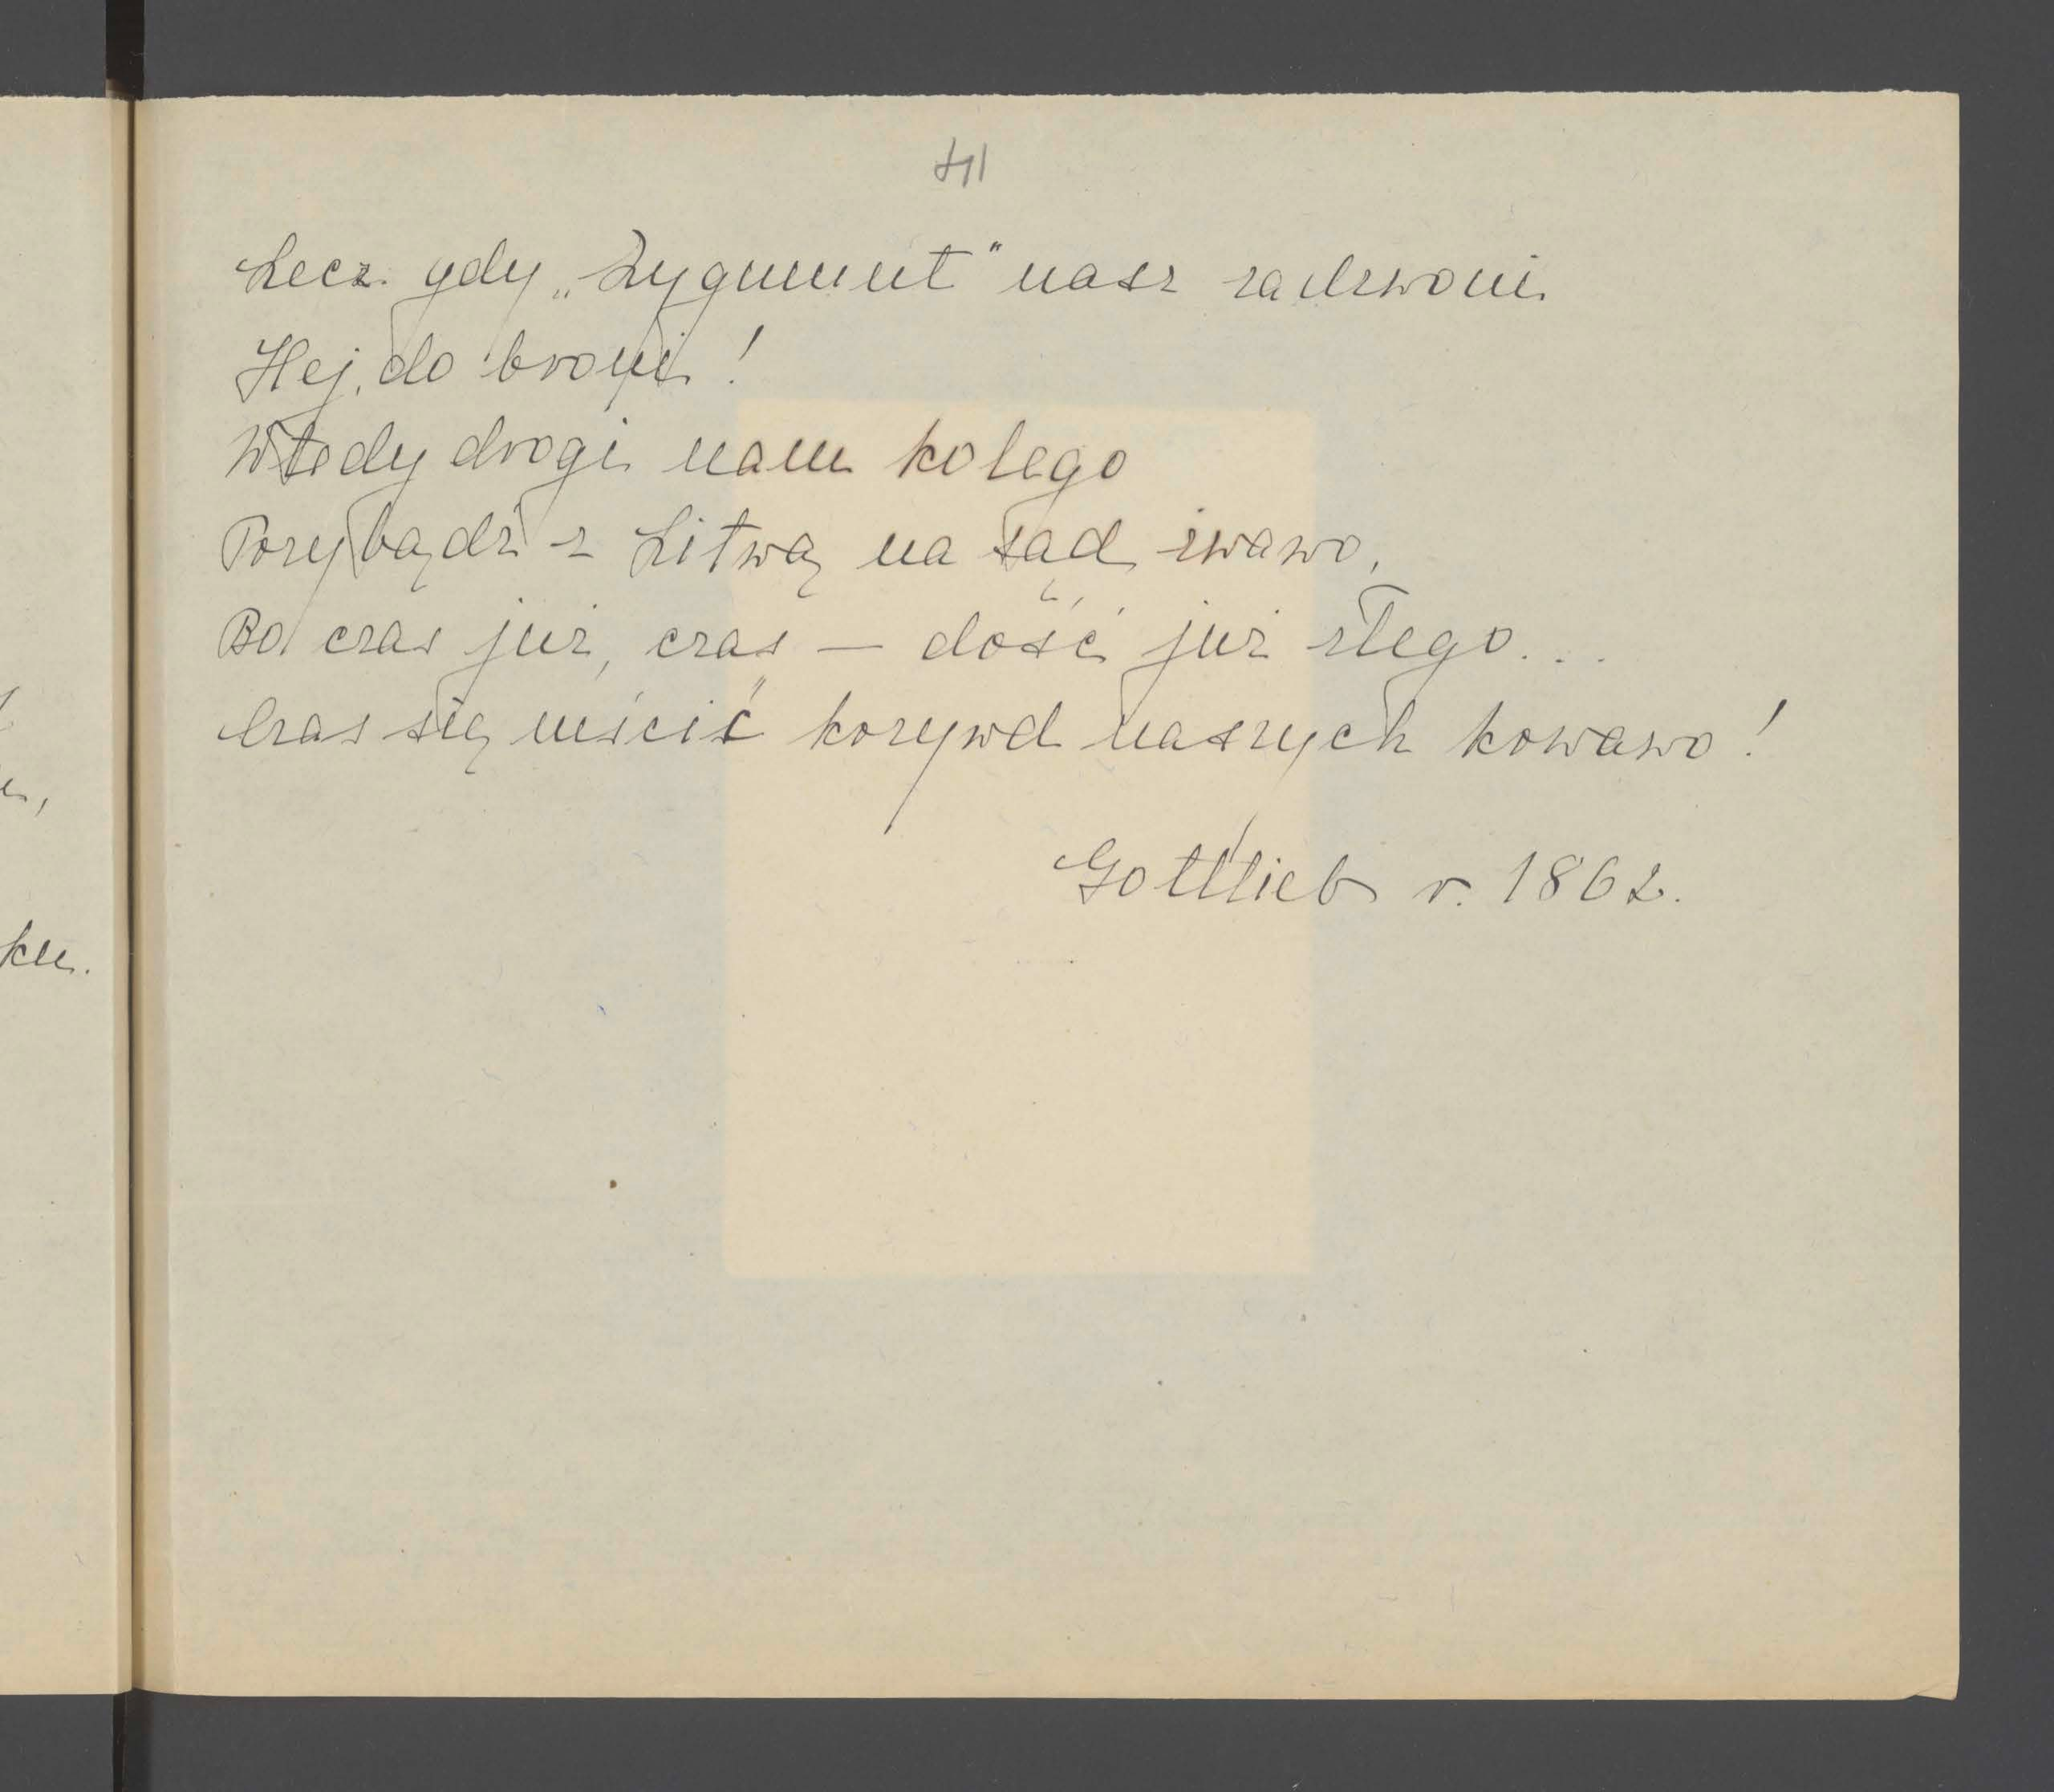 41
Lecz gdy „Zygmunt" nasz zadzwoni
Hej, do broni!
Wtedy drogi nam kolego
Przybądź z Litwą na sąd żwawo,
Bo czas już, czas — dość już złego...
Czas się mścić krzywd naszych krwawo!
Gottlieb r. 1862.